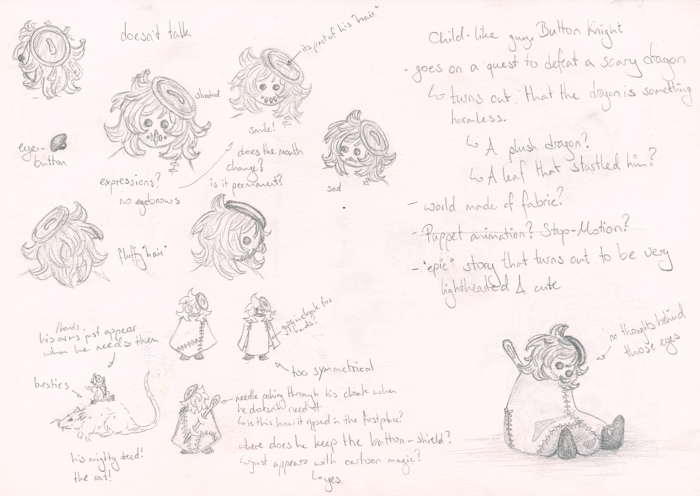 doesn't talk
its part of his "hair"
shaded
smile!
eyes-
button
expressions?
no eyebrows
does the mouth
change?
is it permanent?
sad
fluffy "hair"
/hands
his arms just appear
when he needs them
cloak for
hands?
too symmetrical
besties
his mighty steed!
the rat!
needle poking through his cloak when
he doesn't need it
↳ is this how it ripped in the first place?
where does he keep the button-shield?
↳ just appears with cartoon magic?
↳ yes
Child-like guy, Button Knight
- goes on a quest to defeat a scary dragon
↳ turns out, that the dragon is something
harmless.
↳ A plush dragon?
↳ A leaf that startled him?
- world made of fabric?
- Puppet animation? Stop-Motion?
- "epic" story that turns out to be very
lighthearted & cute
no thoughts behind
those eyes